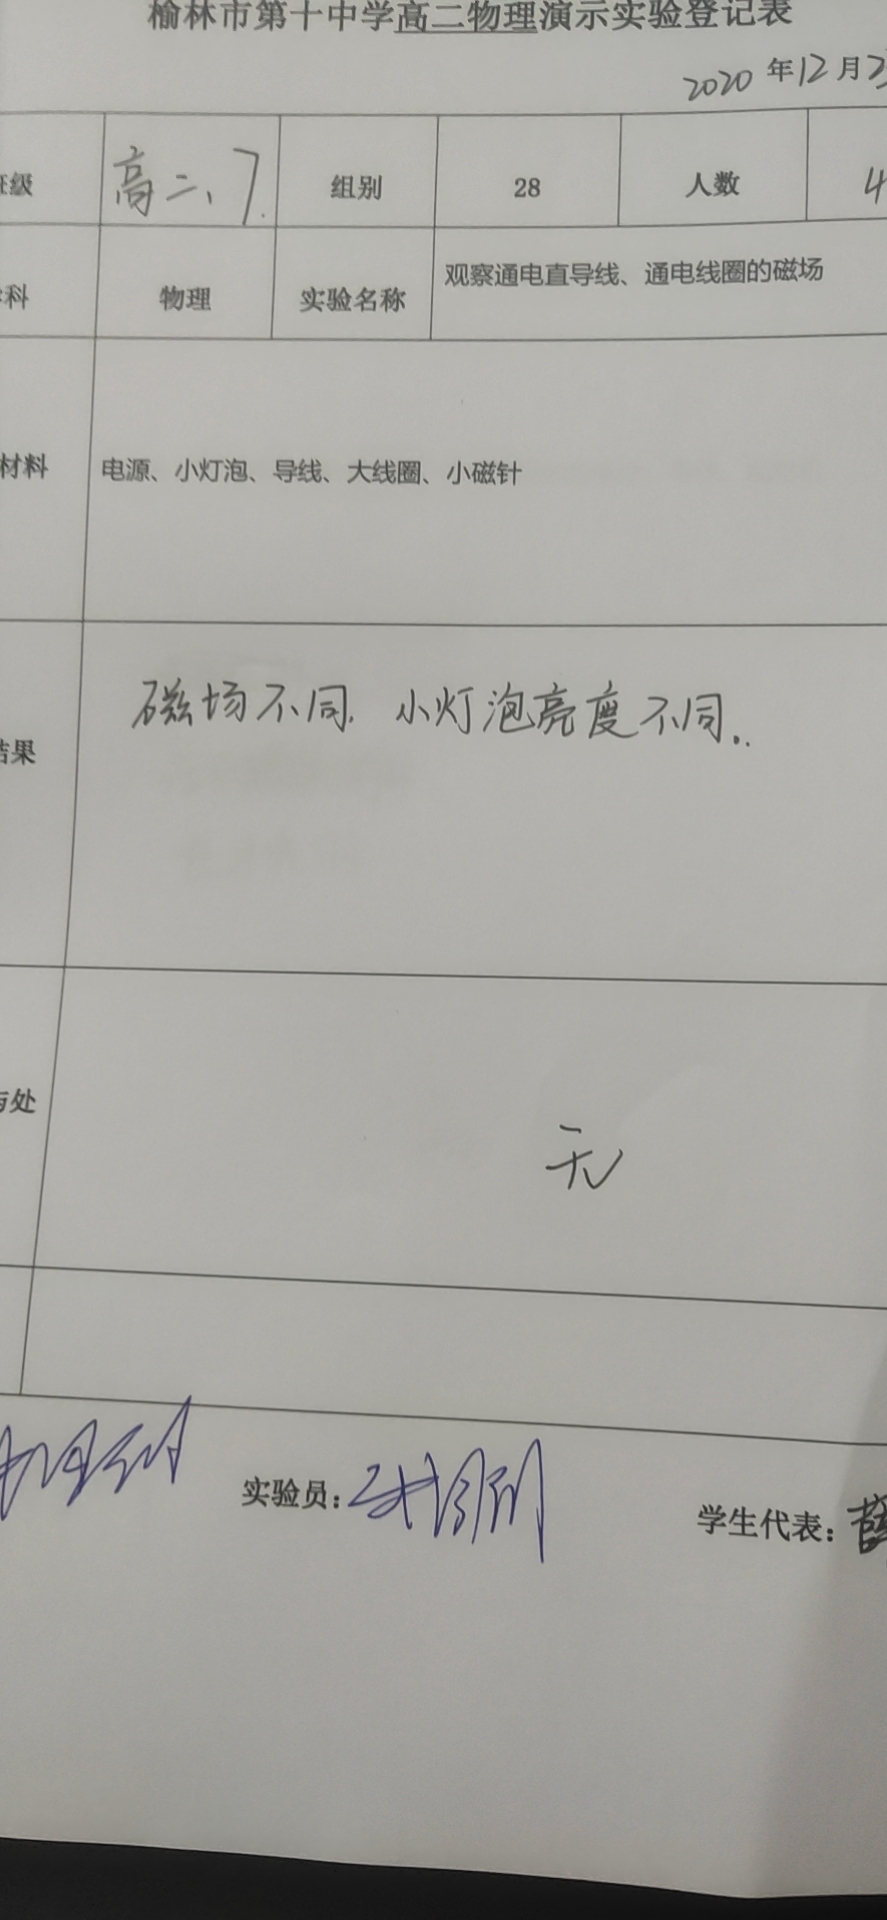 榆林市第十中学高二物理演示实验登记表
2020 年 12 月
级 高二、7. 组别 28 人数 4
科 物理 实验名称 观察通电直导线、通电线圈的磁场
材料 电源、小灯泡、导线、大线圈、小磁针
结果 磁场不同. 小灯泡亮度不同..
与处 无
实验员：
学生代表：